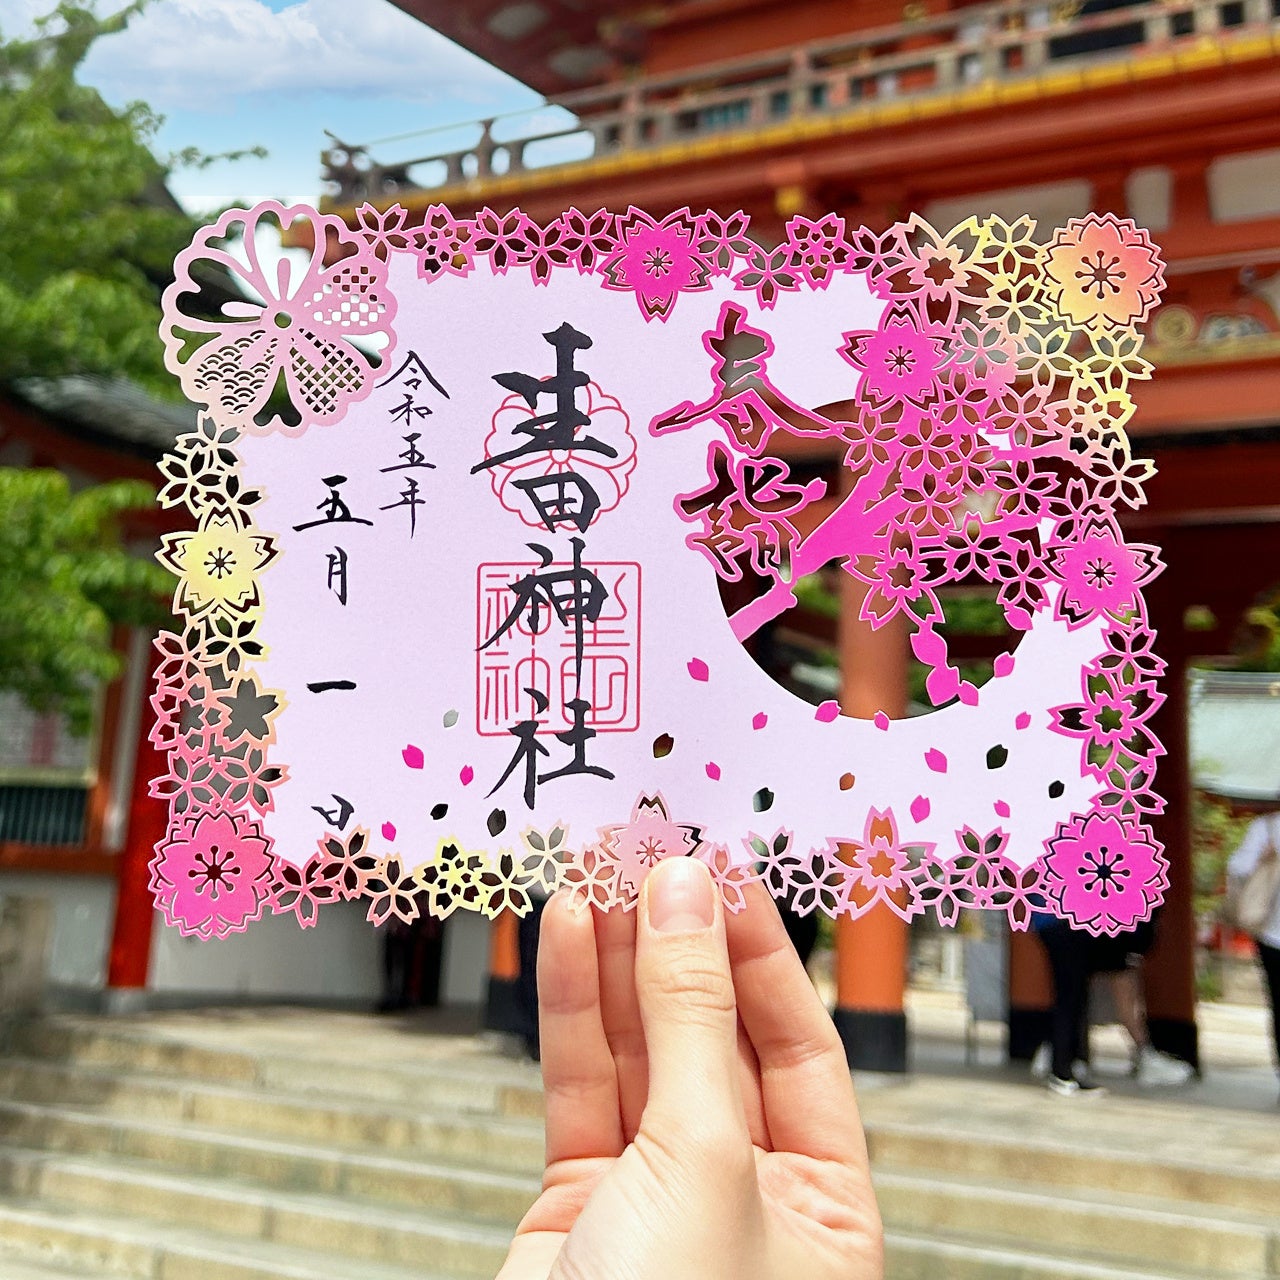 春詣
生田神社
令和五年
五月一日